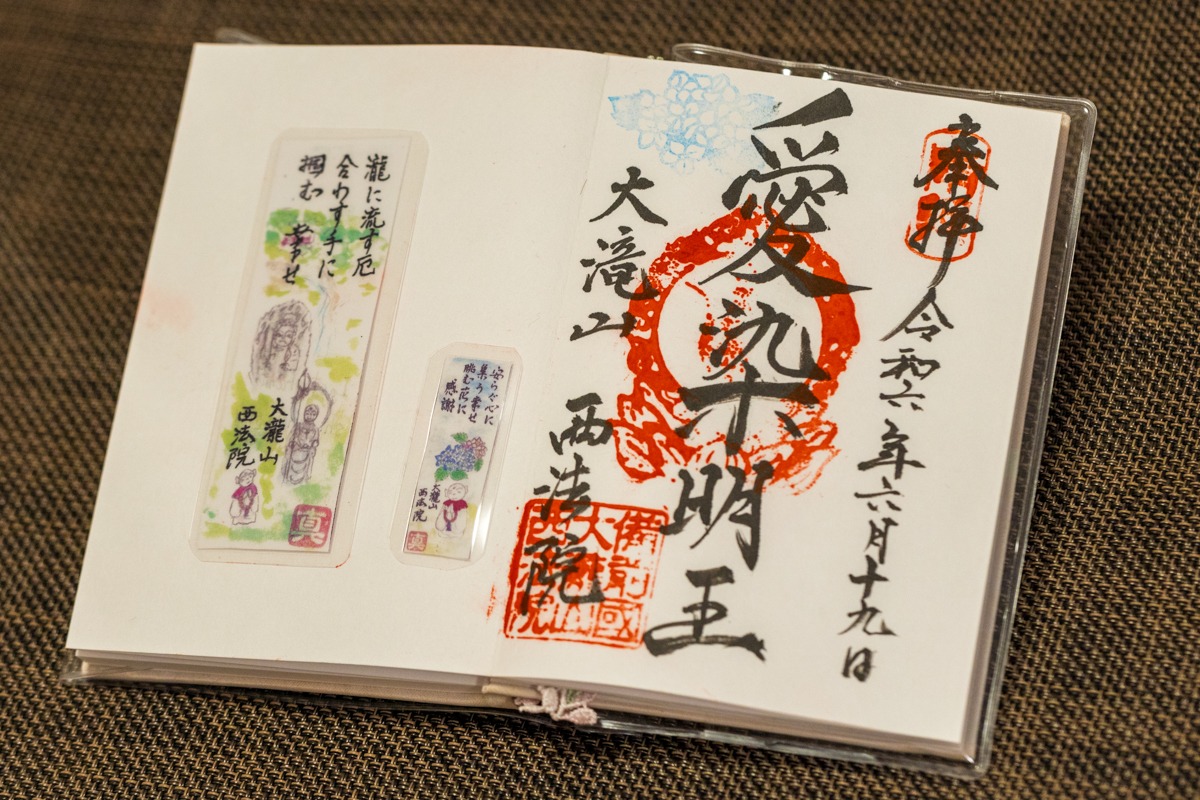 奉拝
令和六年六月十九日
愛染明王
大滝山 西法院
備前國
大瀧山
西法院
瀧に流す厄
合わす手に
掴む 幸せ
大瀧山
西法院
真
安らぐ心に
集う幸せ
眺む花に
感謝
大瀧山
西法院
真